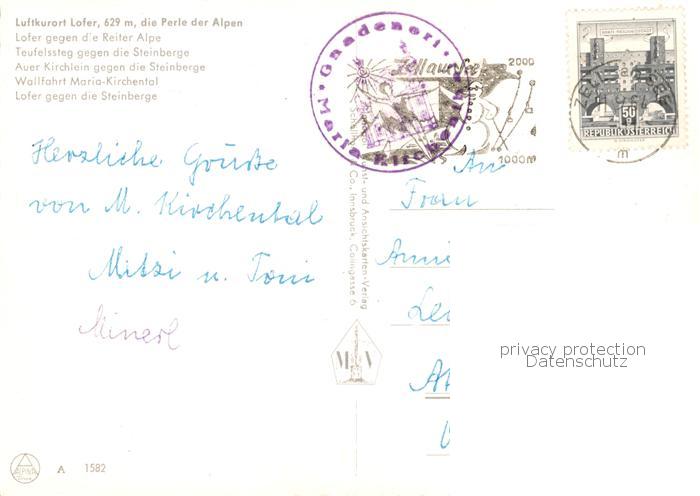 Luftkurort Lofer, 629 m, die Perle der Alpen
Lofer gegen die Reiter Alpe
Teufelssteg gegen die Steinberge
Auer Kirchlein gegen die Steinberge
Wallfahrt Maria-Kirchental
Lofer gegen die Steinberge
Herzliche Grüße
von M. Kirchental
Mitzi u. Toni
Minerl
Gnadenort
Maria-Kirchental
Zell am See
2000
1000m
50
REPUBLIK ÖSTERREICH
Post- und Ansichtskarten-Verlag
& Co., Innsbruck, Collingasse 6
An
Frau
Anni
M V
privacy protection
Datenschutz
ALPINA
A 1582